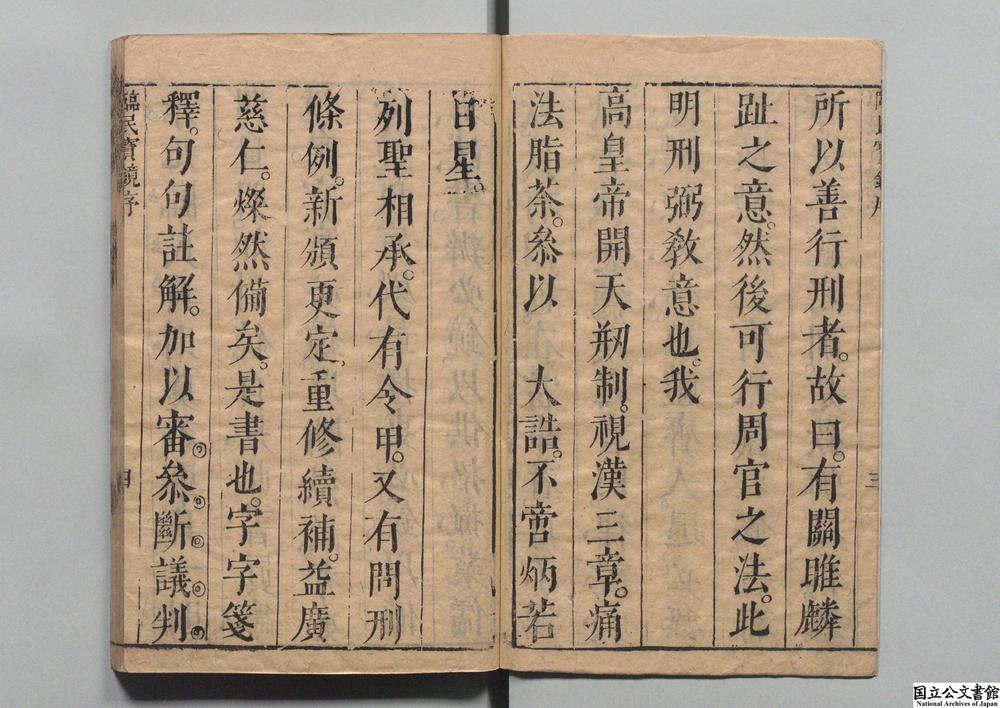 所以善行刑者。故曰。有關雎麟
趾之意。然後可行周官之法。此
明刑弼敎意也。我
高皇帝開天剙制。視漢三章。痛
法脂茶。叅以　大誥。不啻炳若
日星。
列聖相承。代有令甲。又有問刑
條例。新頒更定、重修續補。益廣
慈仁。燦然備矣。是書也。字字箋
釋。句句註解。加以審。叅。斷。議。判。
臨民寶鏡序
国立公文書館
National Archives of Japan